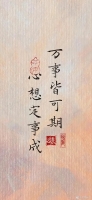 万事皆可期
心想定事成